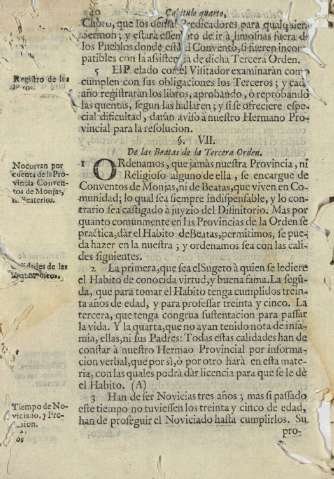 20 Capitulo quarto,
Choro, que los demás Predicadores para qualquier
Sermon; y estarà essento de ir à limosnas fuera de
los Pueblos donde està el Convento, si fueren incom-
patibles con la assistencia de dicha Tercera Orden.
El Prelado con el Visitador examinaràn como
cumplen con sus obligaciones los Terceros; y cada
año registraràn los libros, aprobando, ò reprobando
las quentas, segun las hallaren; y si se ofreciere espe-
cial dificultad, daràn aviso à nuestro Hermano Pro-
vincial para la resolucion.
Registro de los
§. VII.
De las Beatas de la Tercera Orden.
1 Ordenamos, que jamàs nuestra Provincia, ni
Religioso alguno de ella, se encargue de
Conventos de Monjas, ni de Beatas, que viven en Co-
munidad; lo qual sea siempre indispensable, y lo con-
trario sea castigado à juyzio del Disinitorio. Mas por
quanto comunmente en las Provincias de la Orden se
practica, dàr el Habito de Beatas, permitimos, se pue-
da hazer en la nuestra; y ordenamos sea con las cali-
dades siguientes.
No corran por
cuenta de la Pro-
vincia Conven-
tos de Monjas,
ni Beaterios.
2 La primera, que sea el Sugeto à quien se le diere
el Habito de conocida virtud, y buena fama. La segũ-
da, que para tomar el Habito tenga cumplidos trein-
ta años de edad, y para professar treinta y cinco. La
tercera, que tenga congrua sustentacion para passar
la vida. Y la quarta, que no ayan tenido nota de infa-
mia, ellas, ni sus Padres: Todas estas calidades han de
constar à nuestro Hermano Provincial por informa-
cion verbal, que por sì, ò por otro harà en esta mate-
ria, con las quales podrà dar licencia para que se le dè
el Habito. (A)
Calidades de las
3 Han de ser Novicias tres años; mas si passado
este tiempo no tuviessen los treinta y cinco de edad,
han de proseguir el Noviciado hasta cumplirlos. Su
Tiempo de No-
viciado, y Pro-
fession.
pro-